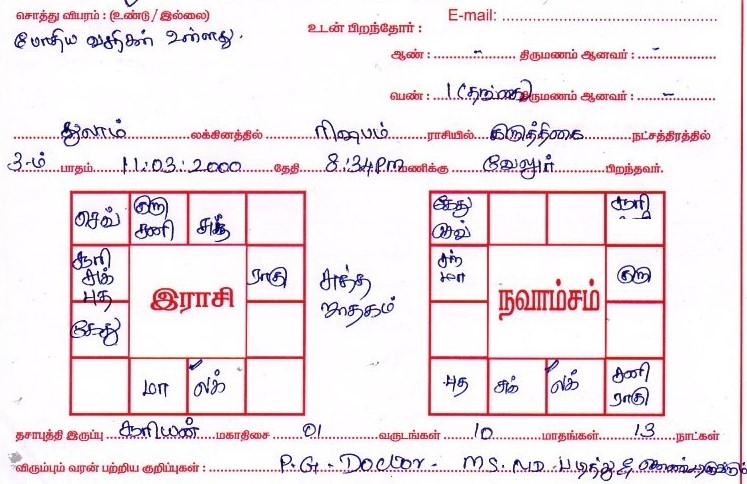 சொத்து விபரம் : (உண்டு / இல்லை) E-mail:
போதிய வசதிகள் உள்ளது. உடன் பிறந்தோர் :
ஆண் : - திருமணம் ஆனவர் : -
பெண் : 1 (தங்கை) திருமணம் ஆனவர் : -
துலாம் லக்கினத்தில் ரிஷபம் ராசியில் கிருத்திகை நட்சத்திரத்தில்
3-ம் பாதம் 11:03:2000 தேதி 8:34pm மணிக்கு வேலூர் பிறந்தவர்.
செவ் குரு சனி சந்
சூரி சுக் புத ராகு
இராசி
கேது
மா லக்
சுத்த ஜாதகம்
கேது செவ் சூரி
சந் மா குரு
நவாம்சம்
புத சுக் லக் சனி ராகு
தசாபுத்தி இருப்பு சூரியன் மகாதிசை 01 வருடங்கள் 10 மாதங்கள் 13 நாட்கள்
விரும்பும் வரன் பற்றிய குறிப்புகள் : P.G - Doctor - MS. MD - படித்து